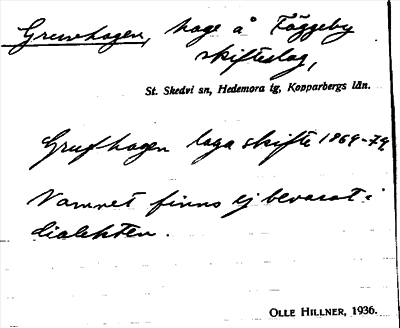 Gruvhagen, hage å Fäggeby
skifteslag,
St. Skedvi sn, Hedemora tg, Kopparbergs län.
Grufhagen laga skifte 1869-79
Namnet finns ej bevarat i
dialekten.
OLLE HILLNER, 1936.